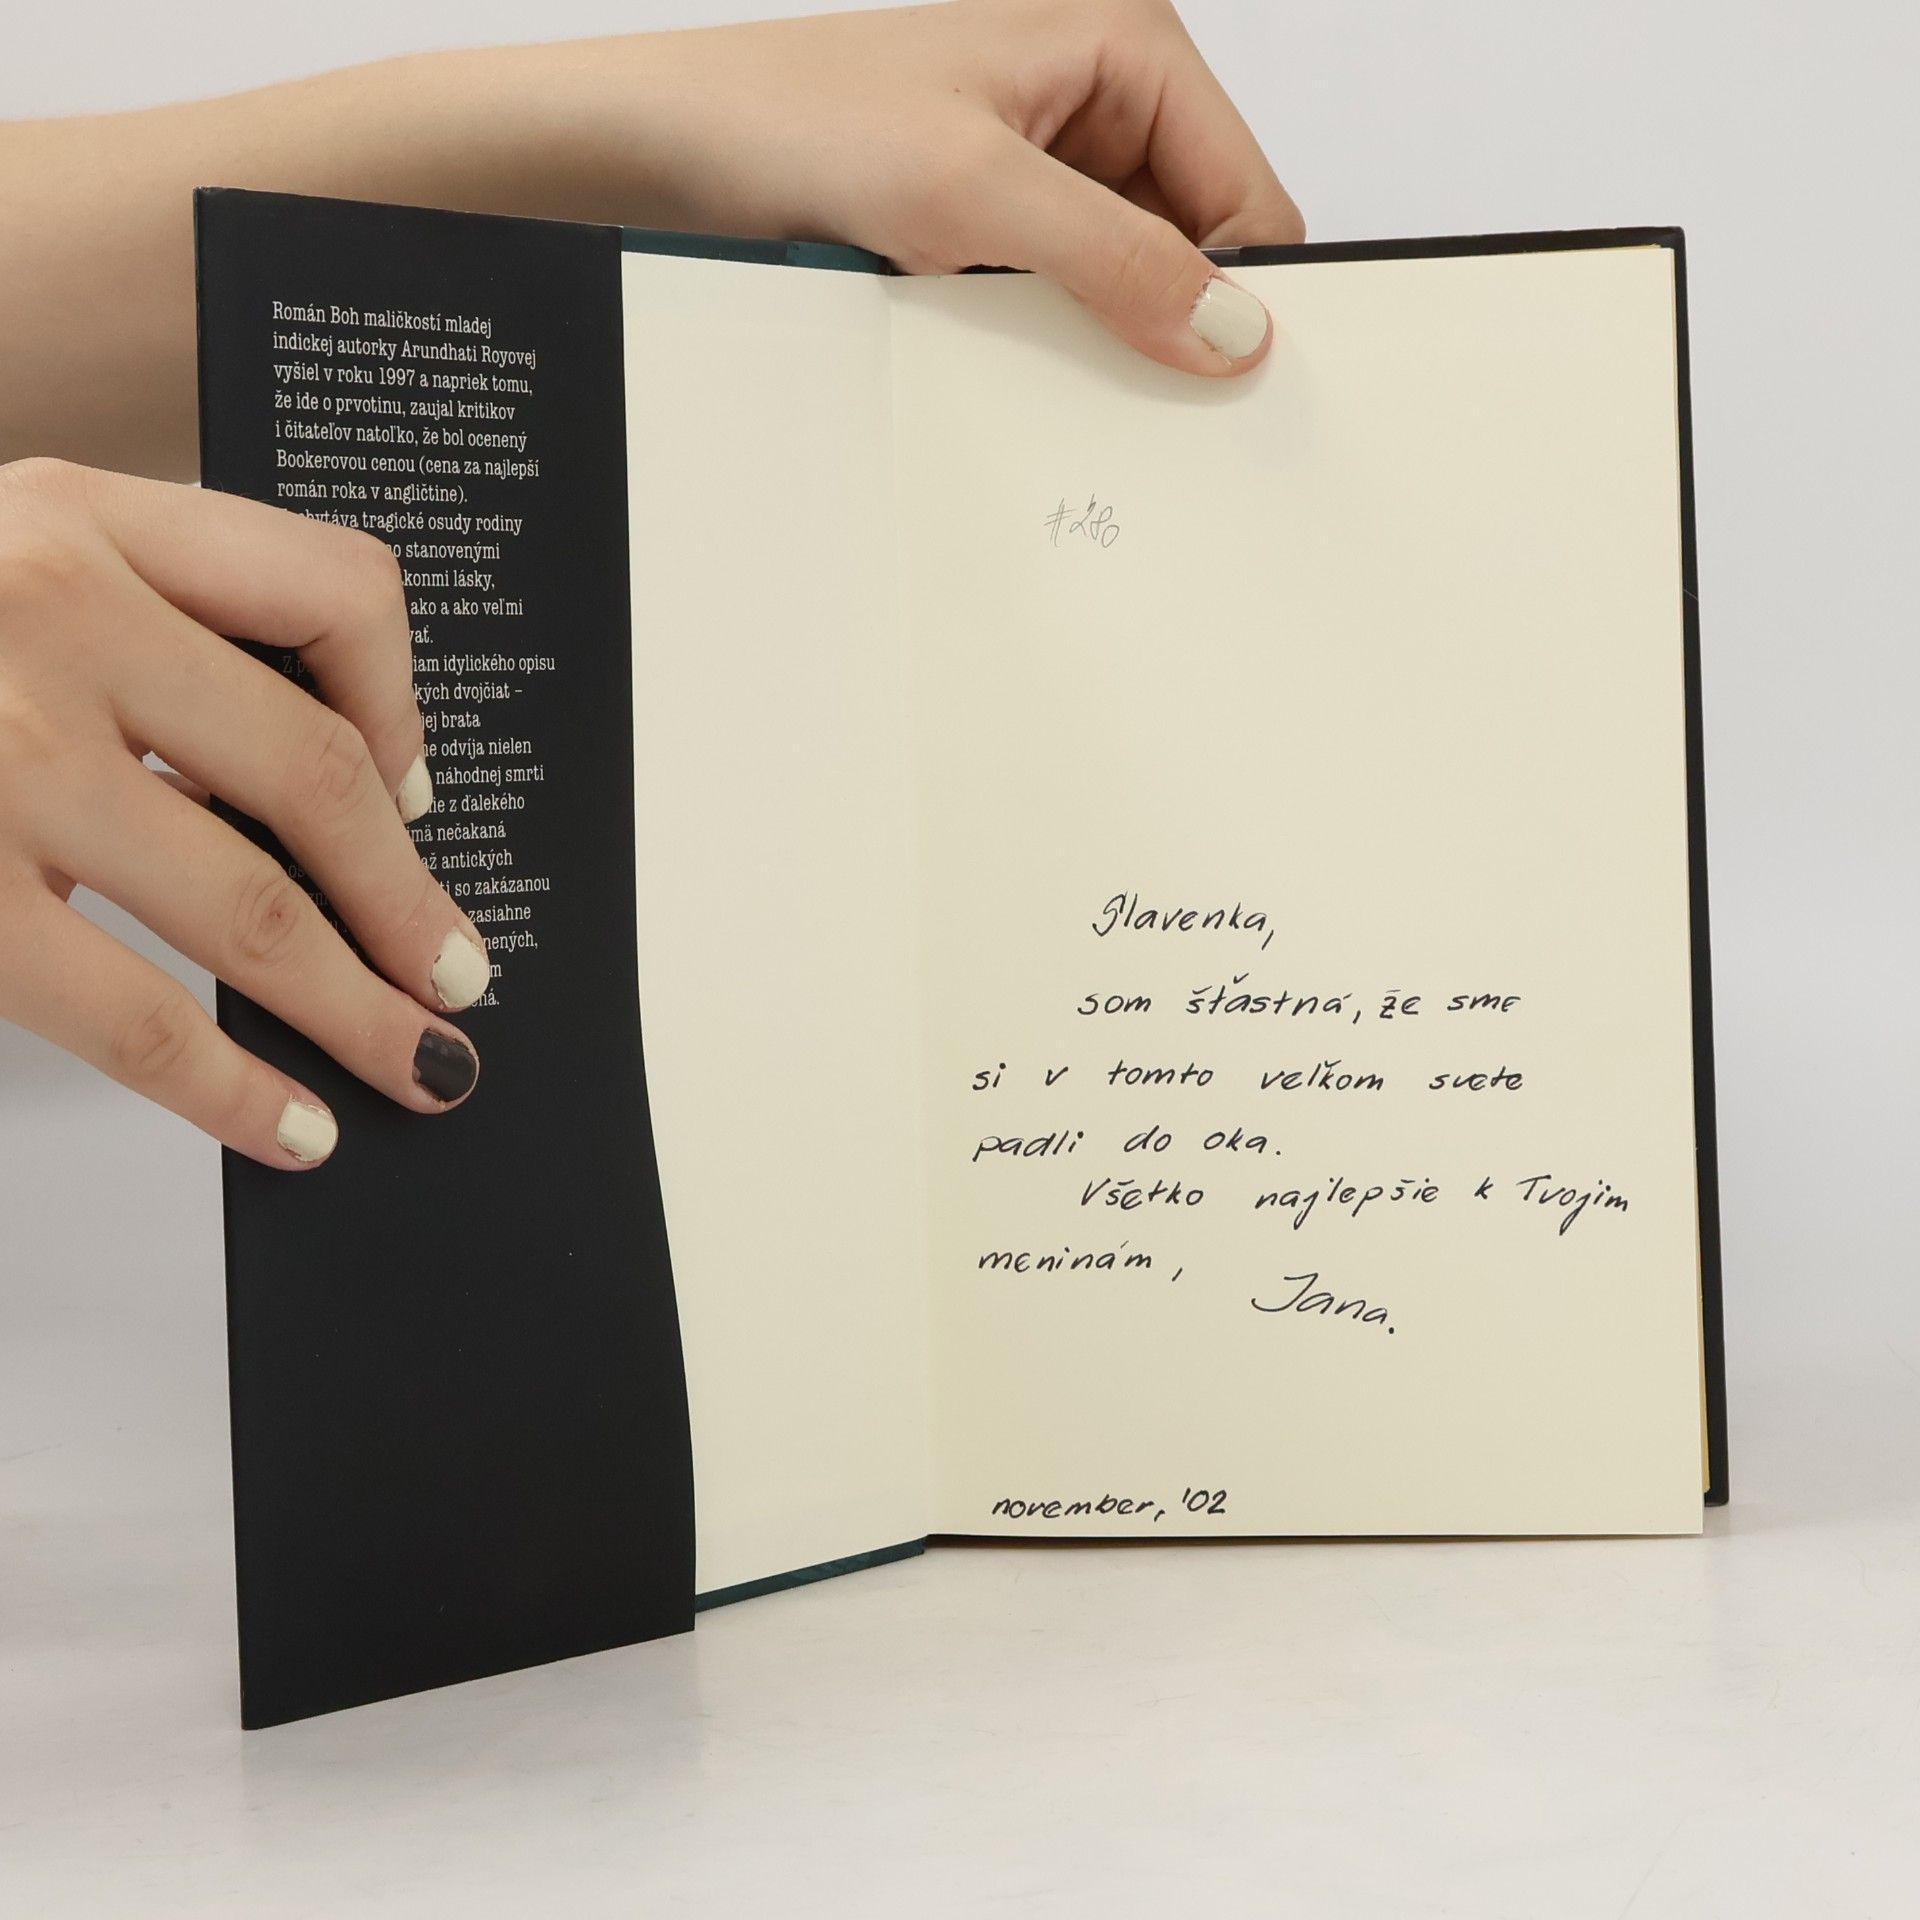 Román Boh maličkostí mladej
indickej autorky Arundhati Royovej
vyšiel v roku 1997 a napriek tomu,
že ide o prvotinu, zaujal kritikov
i čitateľov natoľko, že bol ocenený
Bookerovou cenou (cena za najlepší
román roka v angličtine).
tragické osudy rodiny
stanovenými
lásky,
ako a ako veľmi
idylického opisu
dvojčiat –
jej brata
odvíja nielen
náhodnej smrti
z ďalekého
nečakaná
až antických
so zakázanou
zasiahne
#280
Slavenka,
som šťastná, že sme
si v tomto veľkom svete
padli do oka.
Všetko najlepšie k Tvojim
meninám,
Jana.
november, '02